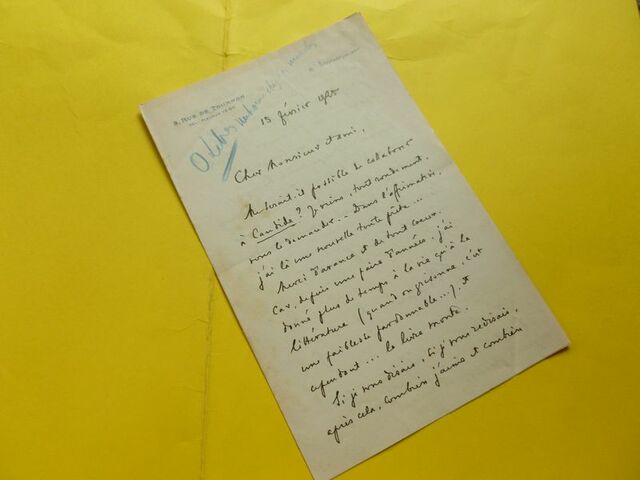 8, RUE DE TOURNON
15 février 1925
Cher Monsieur et ami,
Me serait-il possible de colaborer
à Candide ? Je viens, tout rondement,
vous le demander... Dans l'affirmative,
j'ai là une nouvelle toute prête...
Merci d'avance et de tout coeur.
Car, depuis une paire d'années, j'ai
donné plus de temps à la vie qu'à la
littérature (quand on grisonne, c'est
une faiblesse pardonnable...). Et
cependant... le livre monte.
Si je vous disais, si je vous redisais,
après cela, combien j'aime et combien